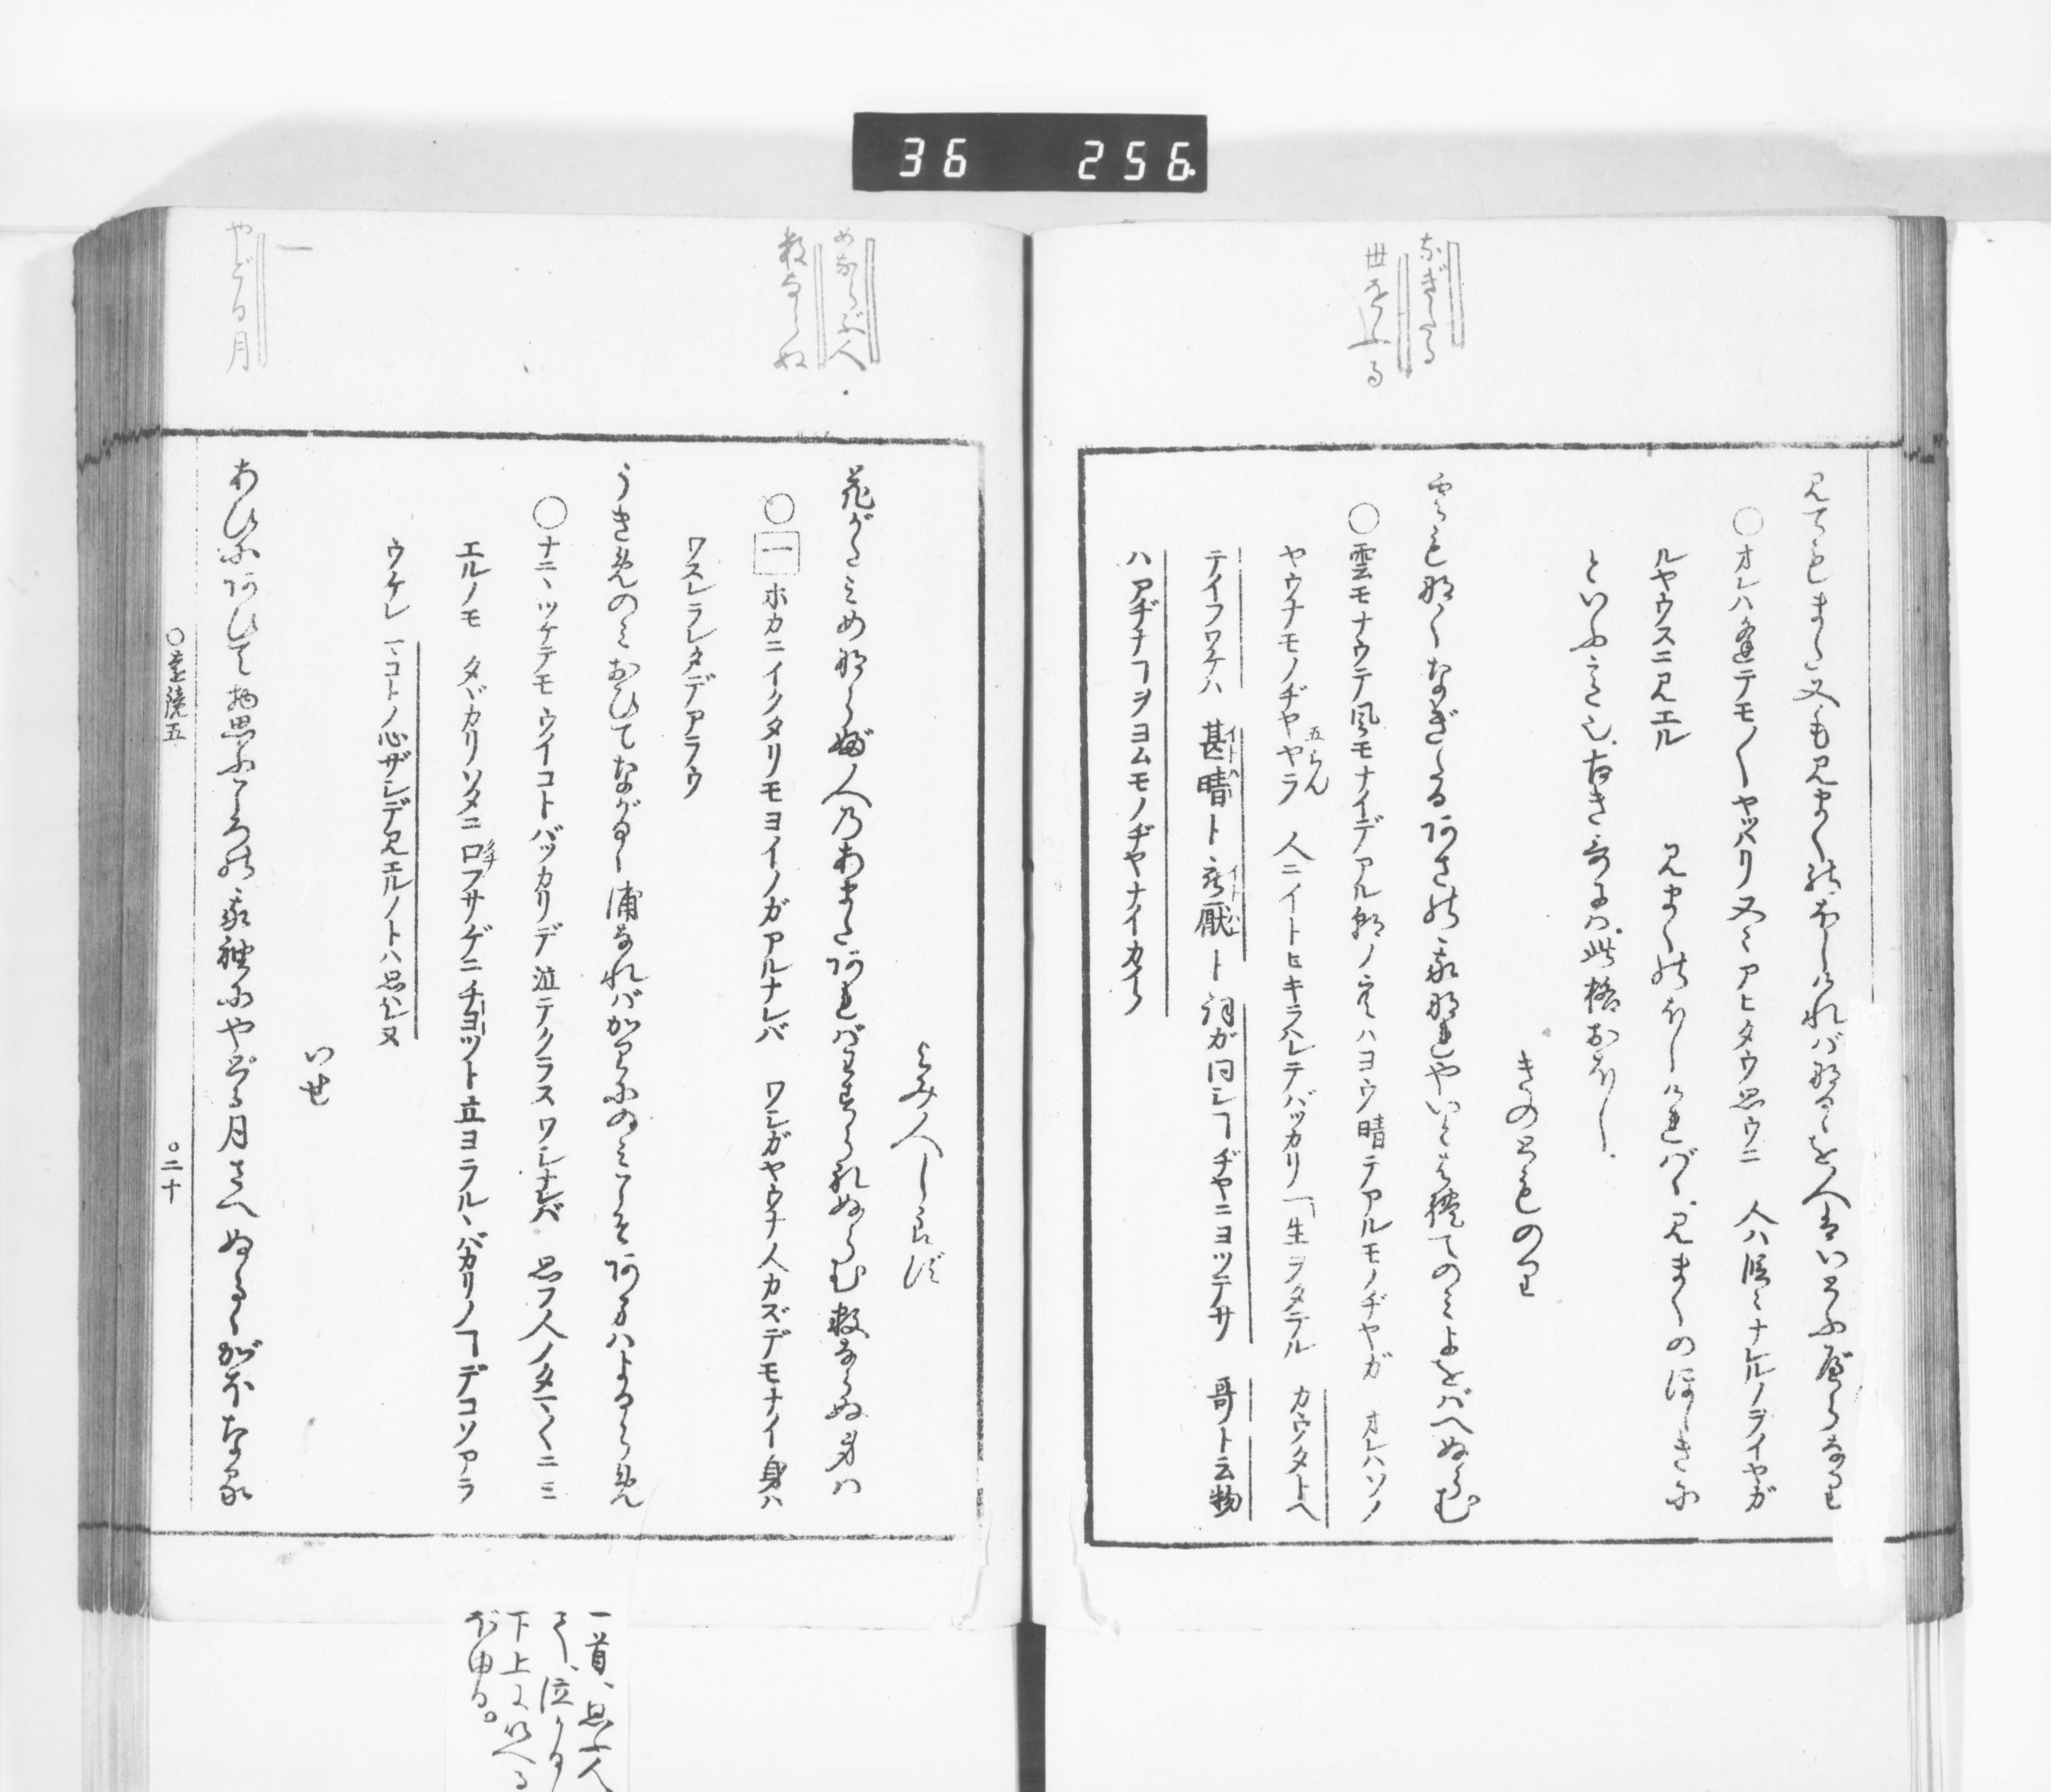 36 256
なぎたる
世をふる
見てもまた又も見まくのほしければなるるを人はいとふべらなり
○オレハ逢テモ〱ヤッパリ又〻アヒタウ思ウニ 人ハ
ルヤウスニ見エル 見まくのほしければゝ見まくのほしきに
といふ意也古き哥には此格おほし
きのとものり
雲もなくなぎたるあさの我なれやいとはれてのみよをばへぬらむ
○雲モナウテ風モナイデアル朝ノ空ハヨウ晴テアルモノヂヤガ オレハソノ
ヤウナモノヂヤヤラ 人ニイトヒキラハレテバッカリ一生ヲタテル カウタトヘ
テイフワケハ 甚晴ト被厭ト 詞ガ同シヿヂヤニヨッテサ 哥ト云物
ハ アヂナヿヲヨムモノヂヤナイカイ
めならぶ人
数ならぬ
やどる月
よみ人しらず
花がたみめならぶ人のあまたあればわすられぬらむ数ならぬ身は
○一 ホカニイクタリモヨイノガアルナレバ ワシガヤウナ人カズデモナイ身ハ
ワスレラレタデアラウ
うきめのみおひてながるゝ浦なればかりにのみこそあまはよるらめ
○ナニヽツケテモ ウイコトバッカリデ 泣テクラス ワシナレバ 思フ人ノタマ〱ニ ミ
エルノモ タヾカリソメニ 口フサゲニ チヨツト立ヨラルヽバカリノヿデコソアラ
ウケレ マコトノ心ザシデ見エルノトハ思ハレヌ
いせ
あひにあひて物思ふころの我袖にやどる月さへぬるゝがほなる
○遠鏡五
○二十
一首、思ふ人
下上に